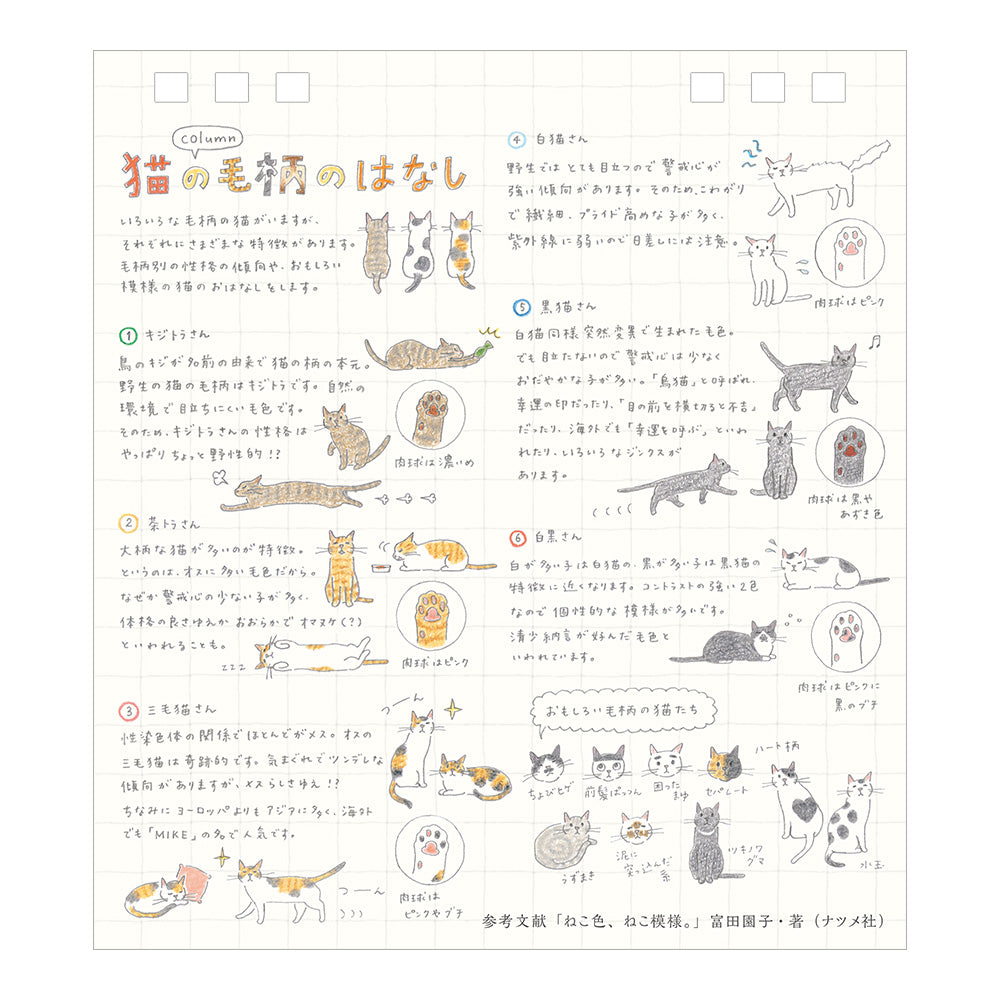 column
猫の毛柄のはなし
いろいろな毛柄の猫がいますが、
それぞれにさまざまな特徴があります。
毛柄別の性格の傾向や、おもしろい
模様の猫のおはなしをします。
① キジトラさん
鳥のキジが名前の由来で猫の柄の本元。
野生の猫の毛柄はキジトラです。自然の
環境で目立ちにくい毛色です。
そのため、キジトラさんの性格は
やっぱりちょっと野性的!?
肉球は濃いめ
② 茶トラさん
大柄な猫が多いのが特徴。
というのは、オスに多い毛色だから。
なぜか警戒心の少ない子が多く、
体格の良さゆえんかおおらかでオマヌケ(?)
といわれることも。
zzz
肉球はピンク
③ 三毛猫さん
性染色体の関係でほとんどがメス。オスの
三毛猫は奇跡的です。気まぐれでツンデレな
傾向がありますが、メスらしさゆえ!?
ちなみにヨーロッパよりもアジアに多く、海外
でも「MIKE」の名で人気です。
つーん
つーん
肉球は
ピンクやブチ
④ 白猫さん
野生ではとても目立つので警戒心が
強い傾向があります。そのため、こわがり
で繊細、プライド高めな子が多く、
紫外線に弱いので日差しには注意。
肉球はピンク
⑤ 黒猫さん
白猫同様突然変異で生まれた毛色。
でも目立たないので警戒心は少なく
おだやかな子が多い。「烏猫」と呼ばれ、
幸運の印だったり、「目の前を横切ると不吉」
だったり、海外でも「幸運を呼ぶ」といわ
れたり、いろいろなジンクスが
あります。
肉球は黒や
あずき色
⑥ 白黒さん
白が多い子は白猫の、黒が多い子は黒猫の
特徴に近くなります。コントラストの強い2色
なので個性的な模様が多いです。
清少納言が好んだ毛色と
いわれています。
肉球はピンクに
黒のブチ
おもしろい毛柄の猫たち
ちょびヒゲ
前髪ぱっつん
困った
まゆ
セパレート
ハート柄
うずまき
泥に
突っ込んだ
系
ツキノワ
グマ
水玉
参考文献「ねこ色、ねこ模様。」富田園子・著(ナツメ社)